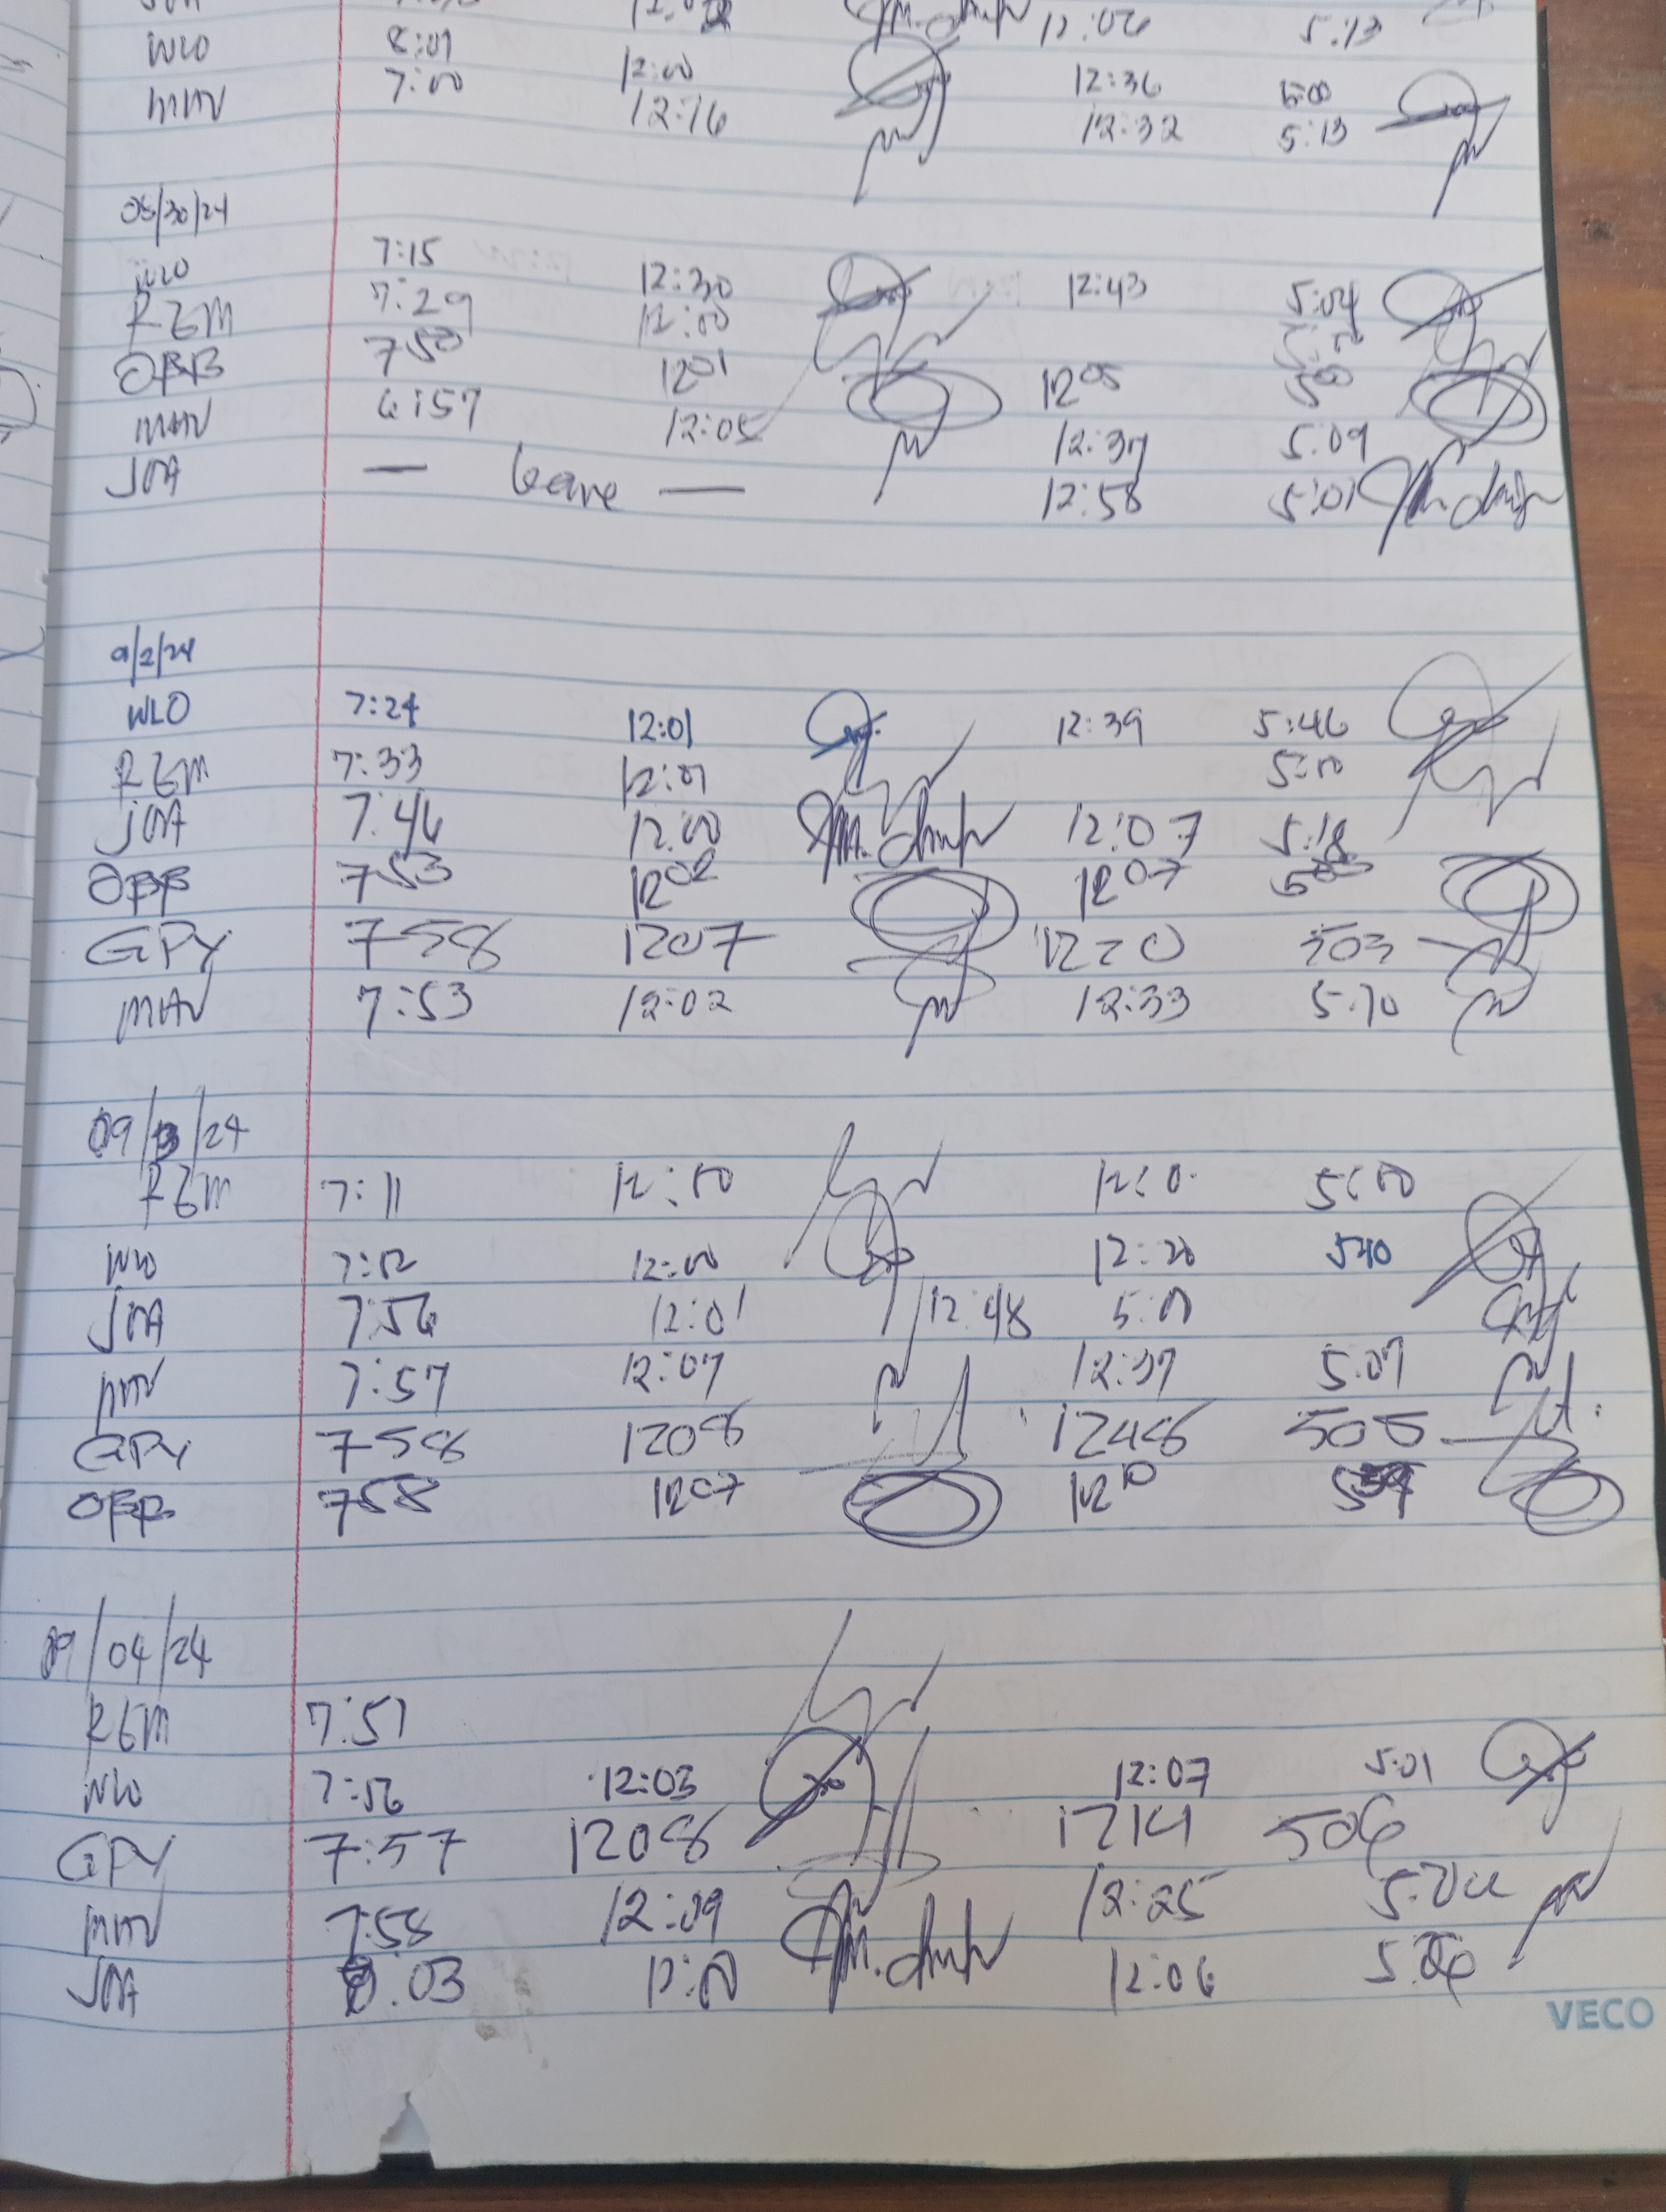 12:06 5:13
WLO 8:01 12:00 12:36 5:00
MAV 7:00 12:16 12:32 5:13
08/30/24
WLO 7:15 12:30 12:43 5:04
REM 7:29 12:00
OBB 7 50 12 01 12 05 5 00
MAV 6:57 12:05 12:37 5:09
JOA — leave — 12:58 5:01
9/2/24
WLO 7:24 12:01 12:39 5:46
REM 7:33 12:01 5:00
JOA 7:46 12:00 12:07 5:18
OBB 7 53 12 02 12 07
GPY 758 1207 1220 503
MAV 7:53 12:02 12:33 5:10
09/3/24
REM 7:11 12:00 5:00
WLO 7:52 12:00 12:20 540
JOA 7:56 12:01 12:48 5:01
MAV 7:57 12:07 12:37 5:07
GPY 758 1208 1248 505
OBB 7 58 12 07 12 10
09/04/24
REM 7:51
WLO 7:56 12:03 12:07 5:01
GPY 7:57 1208 1214 506
MAV 7:58 12:09 12:25
JOA 8:03 12:00 12:06 5:06
VECO